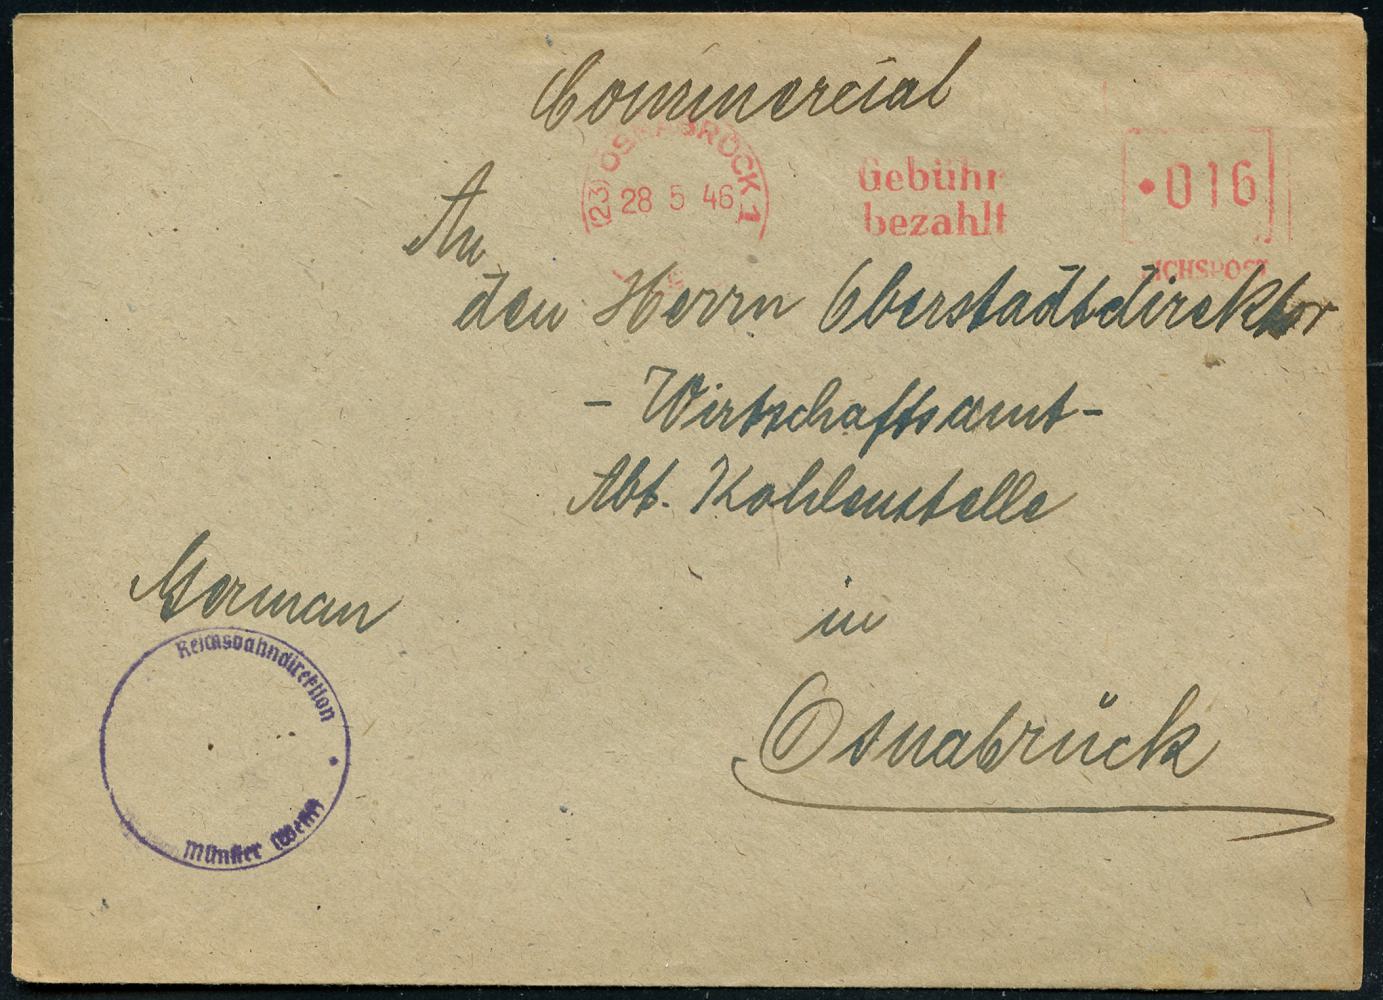 Commercial
(23) OSNABRÜCK 1
28 5 46
Gebühr
bezahlt
016
REICHSPOST
An
den Herrn Oberstadtdirektor
- Wirtschaftsamt -
Abt. Kohlenstelle
German
in
Osnabrück
Reichsbahndirektion
Münster (Westf)